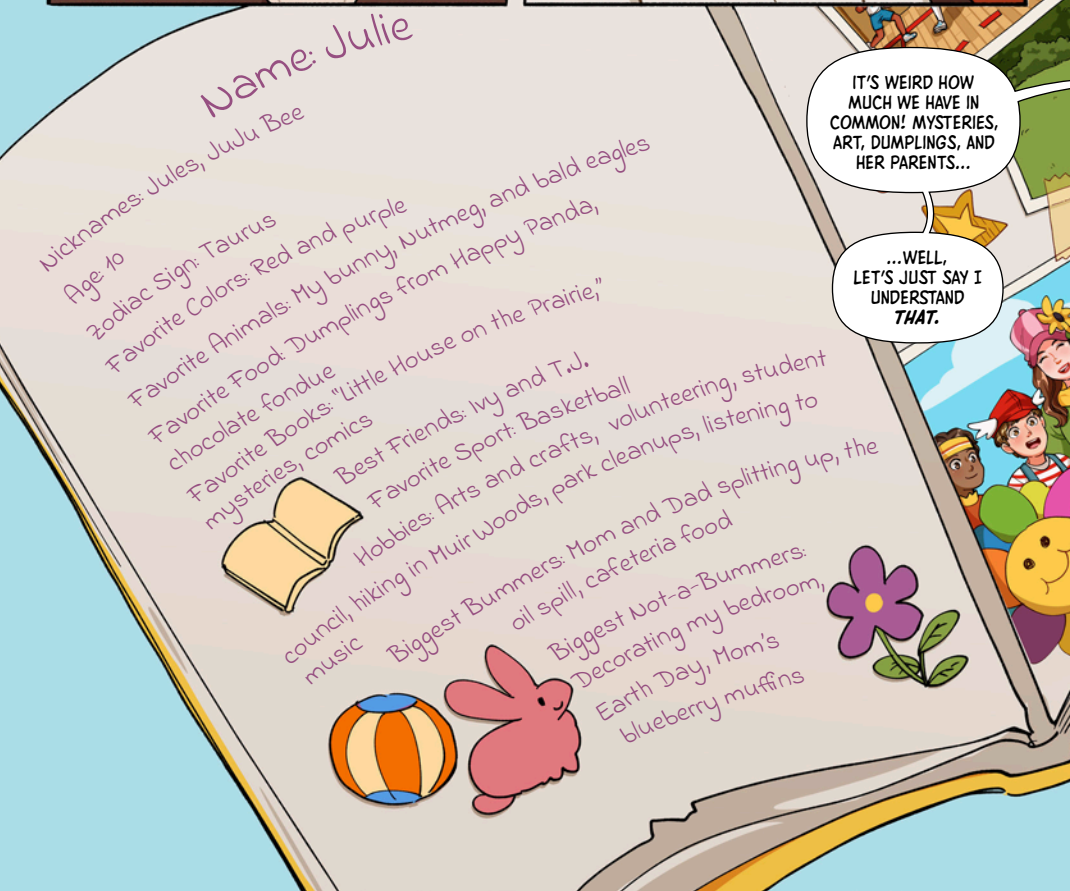 Name: Julie
Nicknames: Jules, JuJu Bee
Age: 10
Zodiac Sign: Taurus
Favorite Colors: Red and purple
Favorite Animals: My bunny, Nutmeg, and bald eagles
Favorite Food: Dumplings from Happy Panda,
chocolate fondue
Favorite Books: "Little House on the Prairie,"
mysteries, comics
Best Friends: Ivy and T.J.
Favorite Sport: Basketball
Hobbies: Arts and crafts, volunteering, student
council, hiking in Muir Woods, park cleanups, listening to
music
Biggest Bummers: Mom and Dad splitting up, the
oil spill, cafeteria food
Biggest Not-a-Bummers:
Decorating my bedroom,
Earth Day, Mom's
blueberry muffins
IT'S WEIRD HOW
MUCH WE HAVE IN
COMMON! MYSTERIES,
ART, DUMPLINGS, AND
HER PARENTS...
...WELL,
LET'S JUST SAY I
UNDERSTAND
THAT.